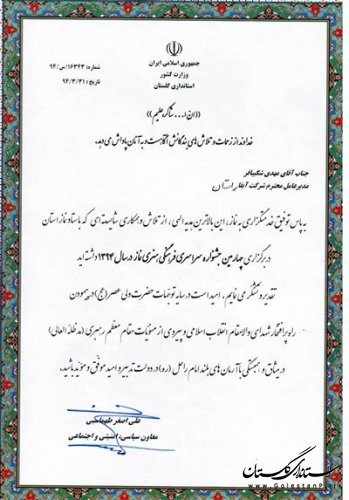 جمهوری اسلامی ایران
وزارت کشور
استانداری گلستان
شماره: ۹۴/س/۱۶۳۴۳
تاریخ: ۹۴/۳/۳۱
«ان ا... شاکر علیم»
خداوند از زحمات و تلاش های بندگانش آگاهست و به آنان پاداش می دهد.
جناب آقای مهدی شکیبافر
مدیرعامل محترم شرکت آبفا استان
به پاس توفیق خدمتگزاری به نماز، این بالاترین هدیه الهی، از تلاش و همکاری شایسته ای که با ستاد نماز استان
در برگزاری چهارمین جشنواره سراسری فرهنگی هنری نماز در سال ۱۳۹۴ داشته اید
تقدیر و تشکر می نمایم. امید است در سایه توجهات حضرت ولی عصر (عج) در پیمودن
راه پر افتخار شهدای والامقام انقلاب اسلامی و پیروی از منویات مقام معظم رهبری (مدظله العالی)
در میثاق و همبستگی با آرمان های بلند امام راحل (ره) در دولت تدبیر و امید موفق و مؤید باشید.
علی اصغر طهماسبی
معاون سیاسی، امنیتی و اجتماعی
استانداری گلستان